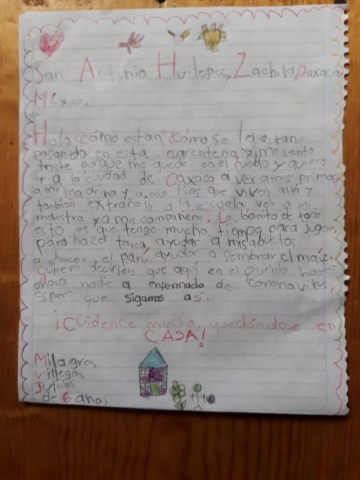 San Antonio Huitepec, Zachila, Oaxaca
México.
Hola ¿cómo están? ¿cómo se la están
pasando en esta cuarentena? Yo me siento
triste porque me quede en el pueblo y quiero
ir a la ciudad de Oaxaca a ver a mis primas
a mi madrina y a mis tías que viven allá y
también extraño ir a la escuela ver a mi
maestra y a mis compañeros. Lo bonito de todo
esto es que tengo mucho tiempo para jugar,
para hacer tarea, ayudar a mis abuelos
a hacer el pan, ayudar a sembrar el maíz.
Quiero decirles que aquí en el pueblo hasta
ahora nadie a enfermado de coronavirus,
espero que sigamos así.
¡Cuidence mucho quedándose en
CASA!
Milagros
Villegas
Julián
de 6 años